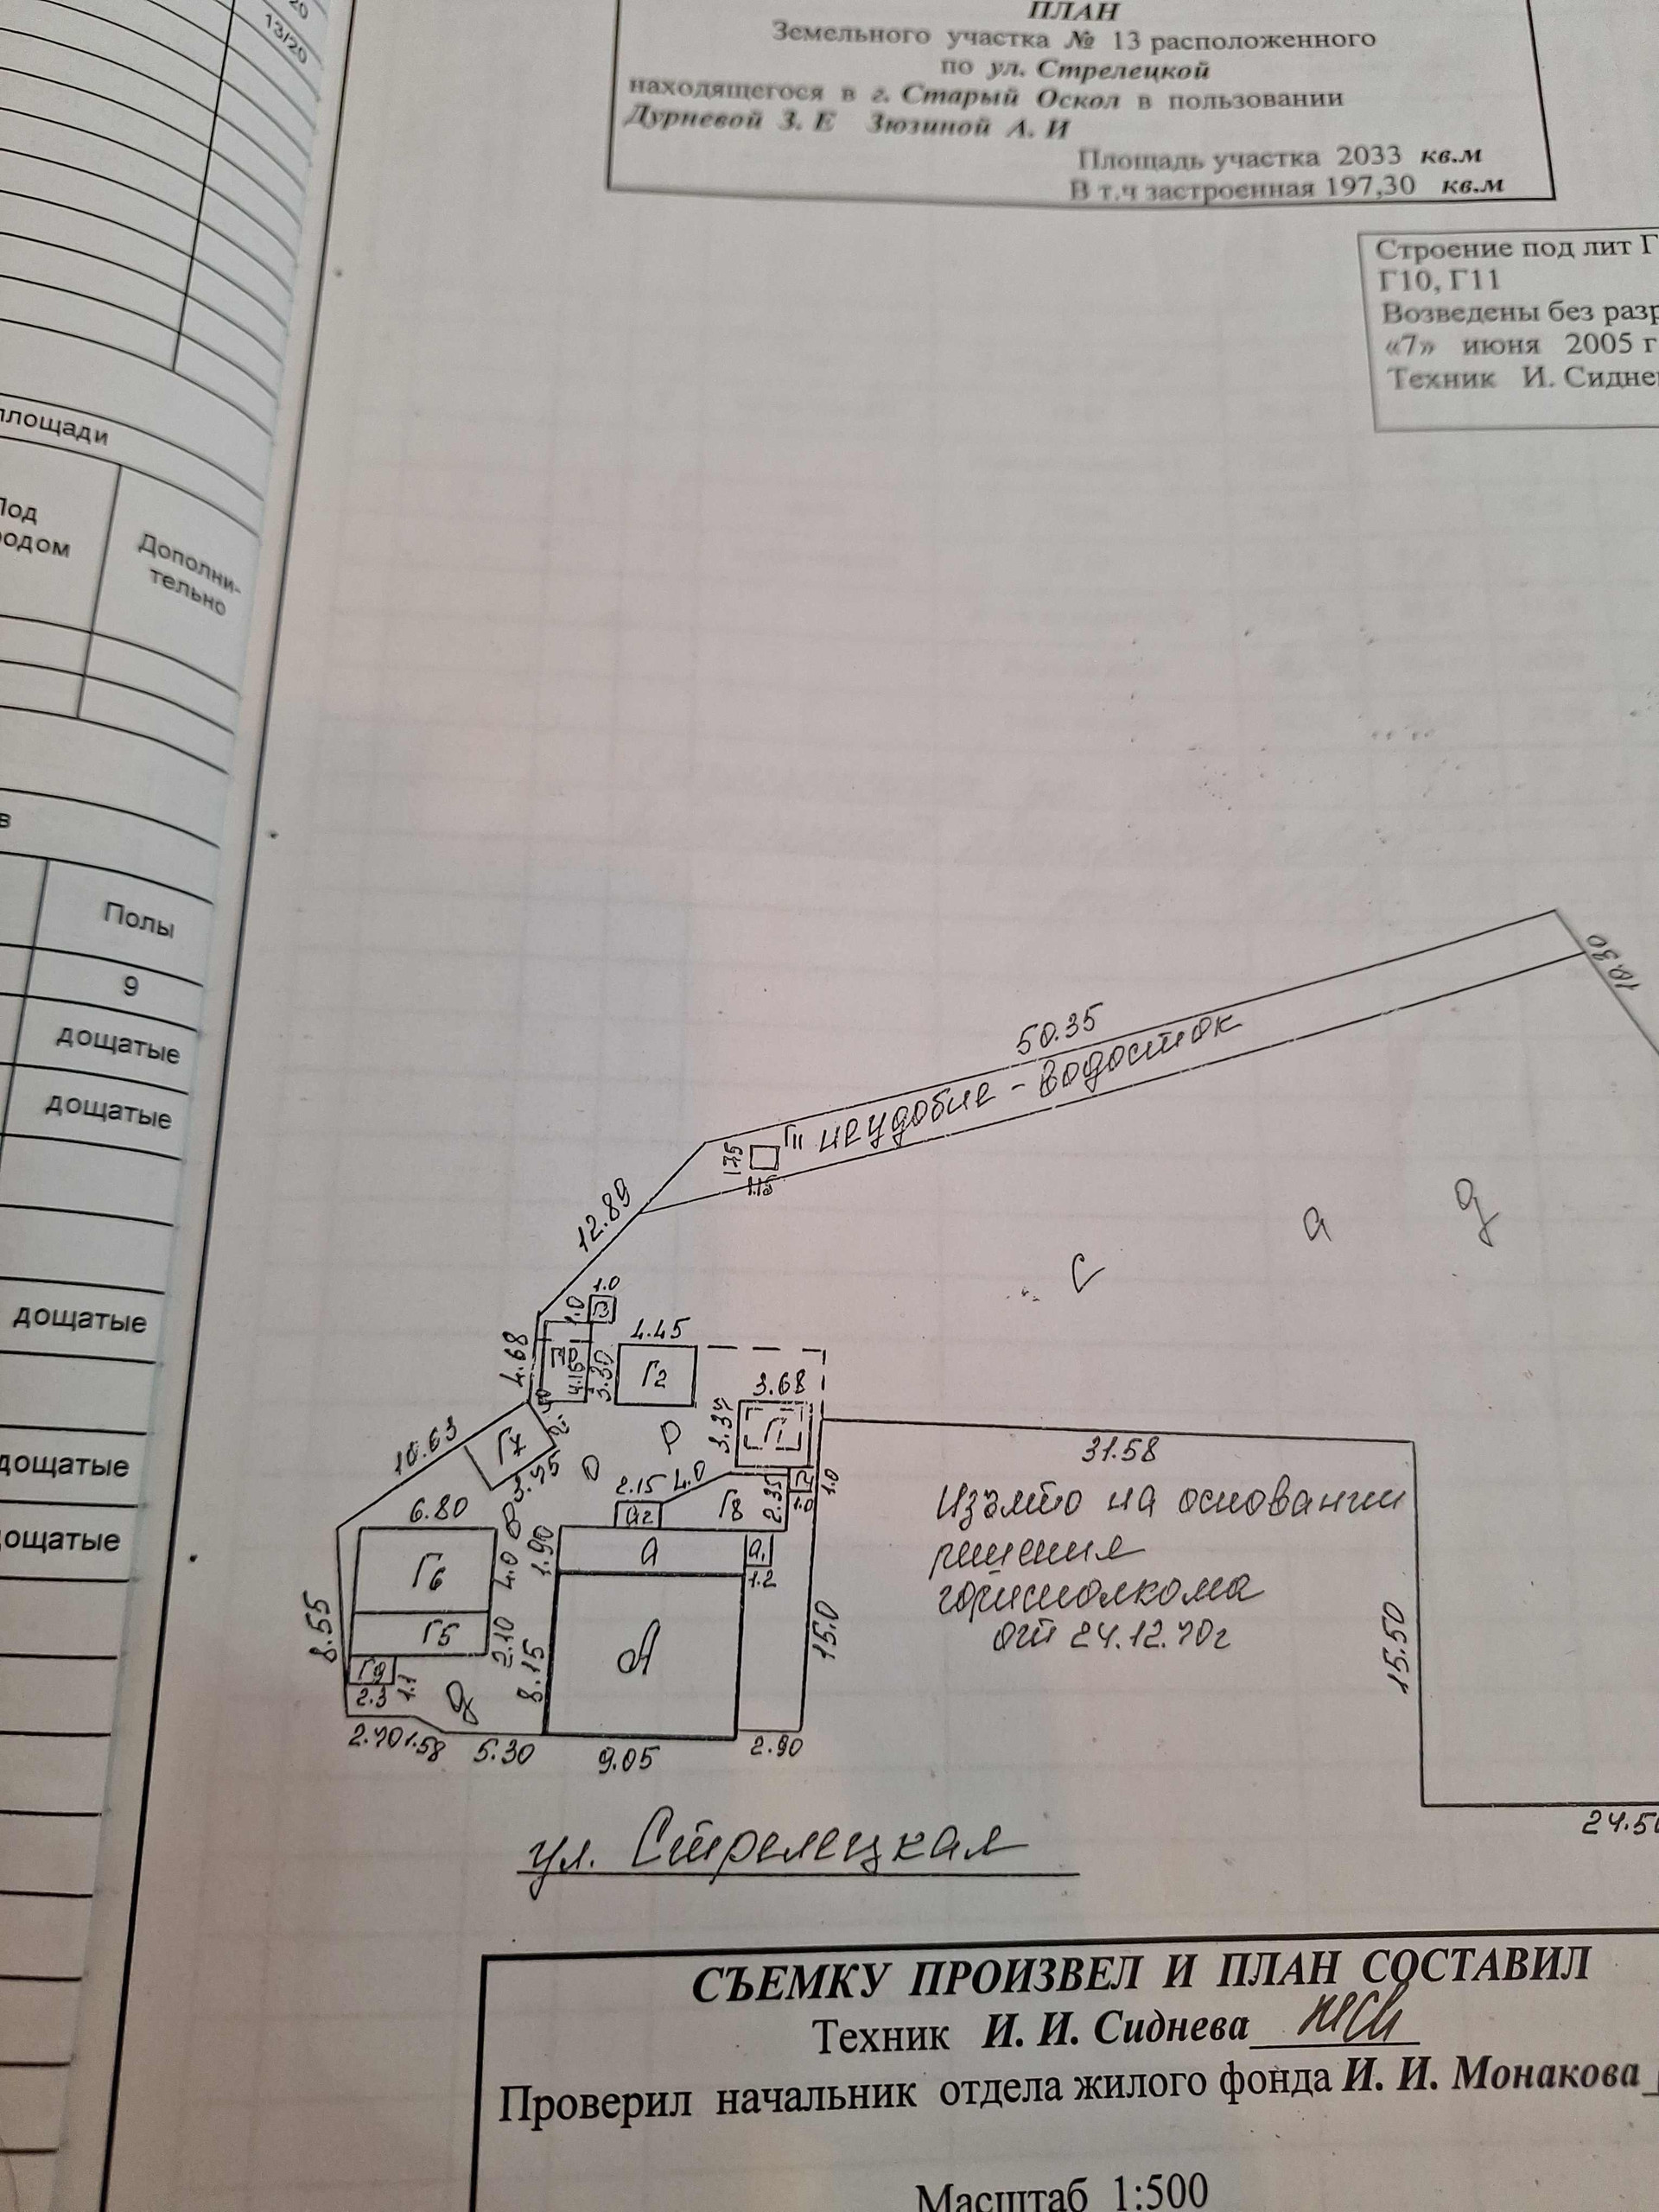 20
13/20
площади
Дополни-
тельно
Полы
9
дощатые
дощатые
дощатые
дощатые
дощатые
ПЛАН
Земельного участка № 13 расположенного
по ул. Стрелецкой
находящегося в г. Старый Оскол в пользовании
Дурневой З. Е Зюзиной А. И
Площадь участка 2033 кв.м
В т.ч застроенная 197,30 кв.м
Строение под лит Г
Г10, Г11
Возведены без разр
«7» июня 2005 г
Техник И. Сидне
10.30
50.35
неудобие - водосток
Г11
1.75
1.15
12.89
с а д
1.0
1.0
Г3
4.45
4.68
4.15
3.30
Г2
3.68
3.34
Г1
10.63
Г7
3.95
д в о р
31.58
2.15
4.0
1.0
6.80
а2
Г8
2.35
1.0
Изъято на основании
решения
горисполкома
от 24.12.70г
1.90
а
а1
1.2
Г6
4.0
8.55
Г5
2.10
А
15.0
15.50
Г9
2.3
1.1
8.15
2.70
1.58
5.30
9.05
2.90
24.50
ул. Стрелецкая
СЪЕМКУ ПРОИЗВЕЛ И ПЛАН СОСТАВИЛ
Техник И. И. Сиднева
Проверил начальник отдела жилого фонда И. И. Монакова
Масштаб 1:500